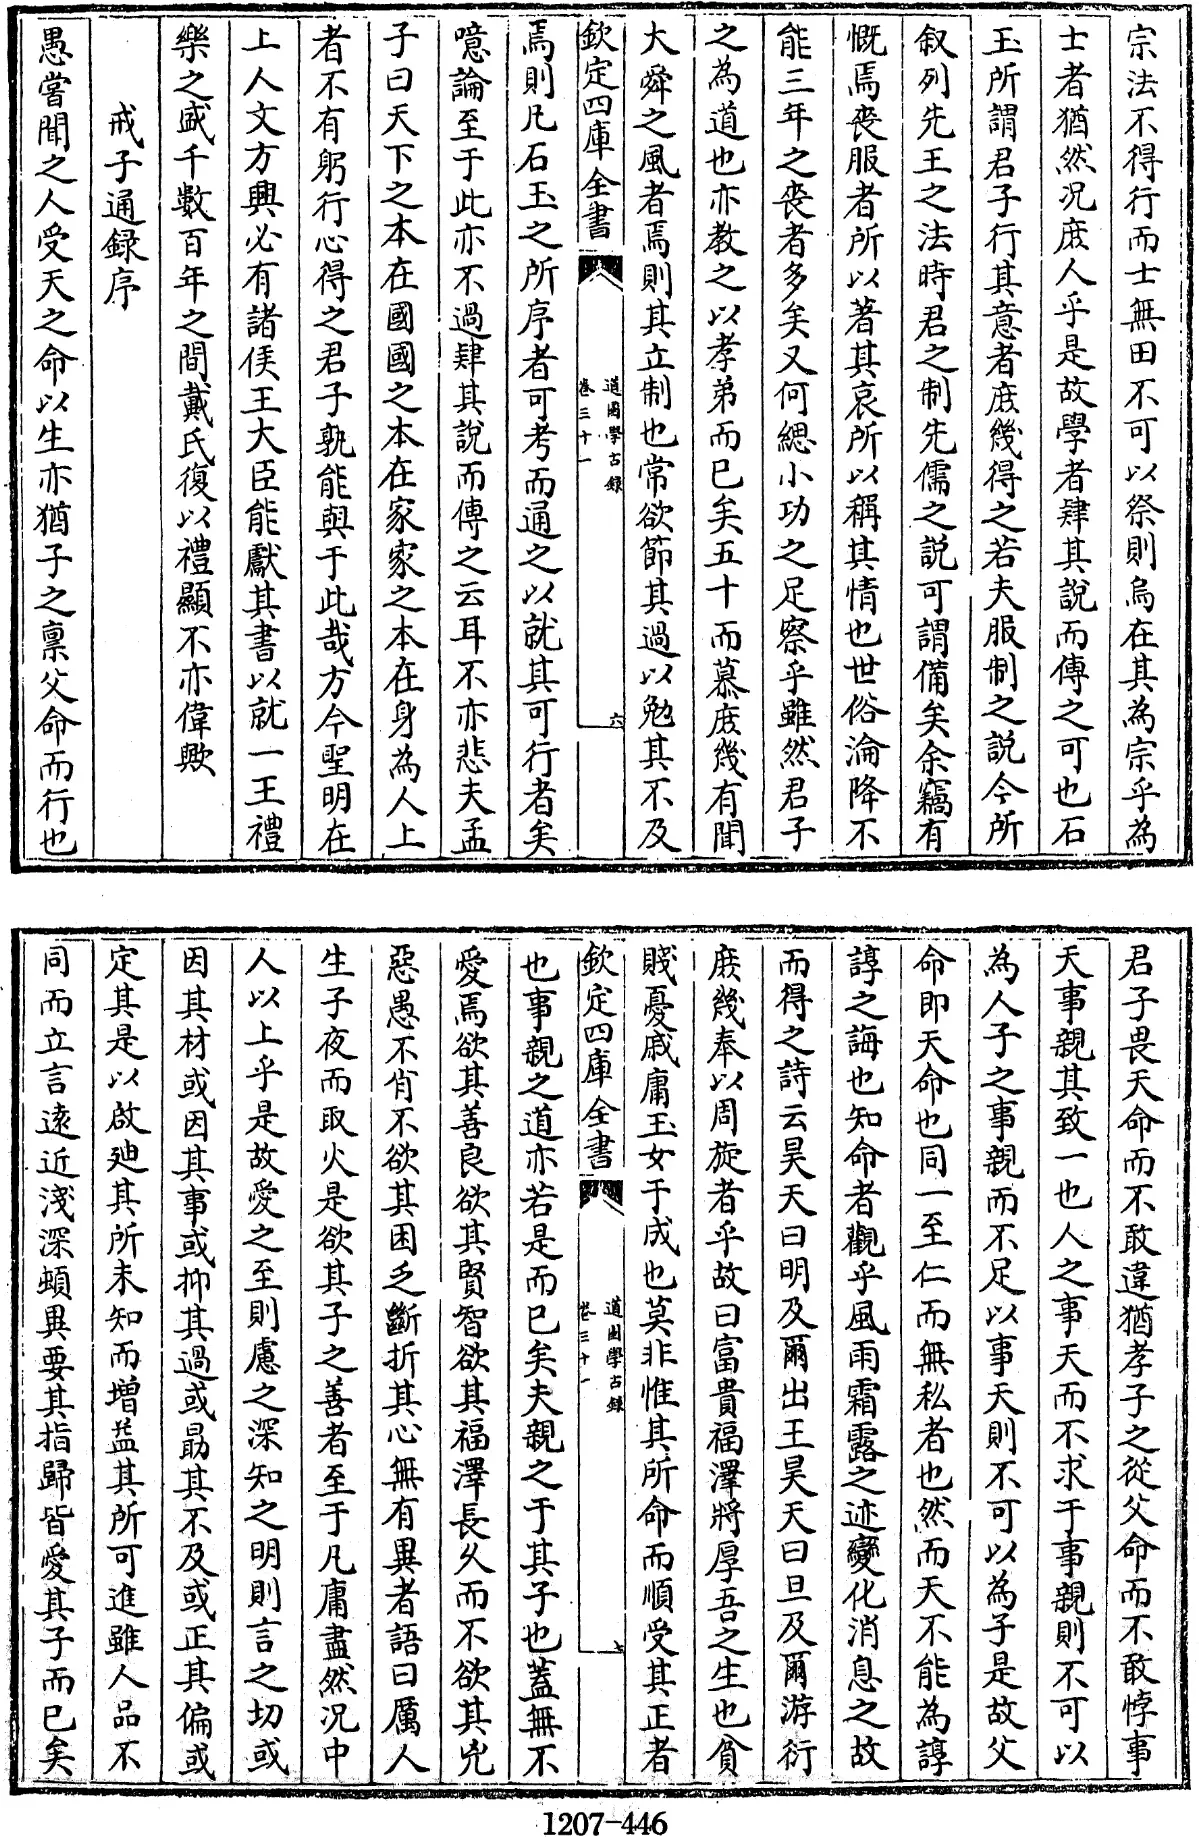 宗法不得行而士無田不可以祭則烏在其為宗乎為
士者猶然况庶人乎是故學者肆其説而傳之可也石
玉所謂君子行其意者庶幾得之若夫服制之説今所
叙列先王之法時君之制先儒之説可謂備矣余竊有
慨焉喪服者所以著其哀所以稱其情也世俗淪降不
能三年之喪者多矣又何緦小功之足察乎雖然君子
之為道也亦教之以孝弟而已矣五十而慕庶幾有聞
大舜之風者焉則其立制也常欲節其過以勉其不及
欽定四庫全書
道園學古錄
卷三十一
六
焉則凡石玉之所序者可考而通之以就其可行者矣
噫論至于此亦不過肆其説而傳之云耳不亦悲夫孟
子曰天下之本在國國之本在家家之本在身為人上
者不有躬行心得之君子孰能與于此哉方今聖明在
上人文方興必有諸侯王大臣能獻其書以就一王禮
樂之盛千數百年之間戴氏復以禮顯不亦偉歟
戒子通録序
愚嘗聞之人受天之命以生亦猶子之禀父命而行也
君子畏天命而不敢違猶孝子之從父命而不敢悖事
天事親其致一也人之事天而不求于事親則不可以
為人子之事親而不足以事天則不可以為子是故父
命即天命也同一至仁而無私者也然而天不能為諄
諄之誨也知命者觀乎風雨霜露之迹變化消息之故
而得之詩云昊天曰明及爾出王昊天曰旦及爾游衍
庶幾奉以周旋者乎故曰富貴福澤將厚吾之生也貧
賤憂戚庸玉女于成也莫非惟其所命而順受其正者
欽定四庫全書
道園學古錄
卷三十一
七
也事親之道亦若是而已矣夫親之于其子也蓋無不
愛焉欲其善良欲其賢智欲其福澤長久而不欲其兇
惡愚不肖不欲其困乏斷折其心無有異者語曰厲人
生子夜而取火是欲其子之善者至于凡庸盡然况中
人以上乎是故愛之至則慮之深知之明則言之切或
因其材或因其事或抑其過或勗其不及或正其偏或
定其是以啟廸其所未知而増益其所可進雖人品不
同而立言遠近淺深頓異要其指歸皆愛其子而已矣
1207-446